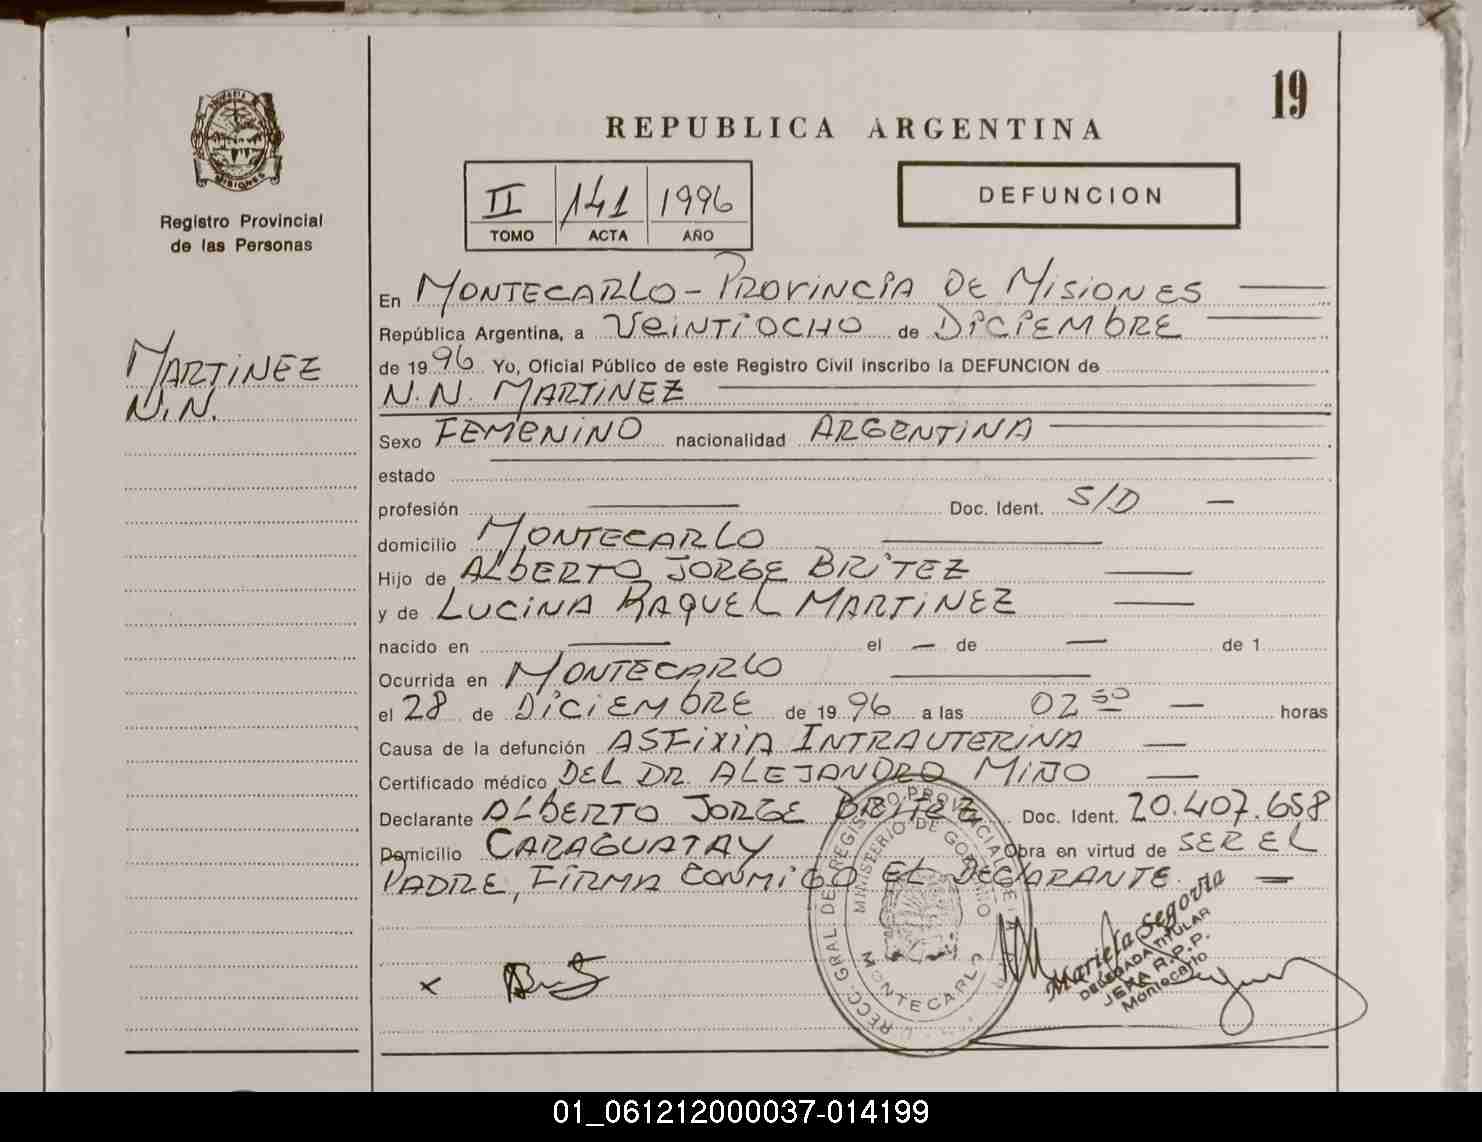 19
MISIONES
Registro Provincial
de las Personas
REPUBLICA ARGENTINA
II 141 1996
TOMO ACTA AÑO
DEFUNCION
MARTINEZ
N.N.
En MONTECARLO - PROVINCIA DE MISIONES
República Argentina, a VEINTIOCHO de DICIEMBRE
de 1996 Yo, Oficial Público de este Registro Civil inscribo la DEFUNCION de
N.N. MARTINEZ
Sexo FEMENINO nacionalidad ARGENTINA
estado
profesión Doc. Ident. S/D
domicilio MONTECARLO
Hijo de ALBERTO JORGE BRITEZ
y de LUCINA RAQUEL MARTINEZ
nacido en el — de — de 1
Ocurrida en MONTECARLO
el 28 de DICIEMBRE de 1996 a las 02 50 horas
Causa de la defunción ASFIXIA INTRAUTERINA
Certificado médico DEL DR. ALEJANDRO MIÑO
Declarante ALBERTO JORGE BRITEZ Doc. Ident. 20.407.658
Domicilio CARAGUATAY Obra en virtud de SER EL
PADRE, FIRMA CONMIGO EL DECLARANTE. —
x
MINISTERIO DE GOBIERNO
MONTECARLO
Mariela Segovia
DELEGADA TITULAR
JEFA R.P.P.
Montecarlo
01_061212000037-014199